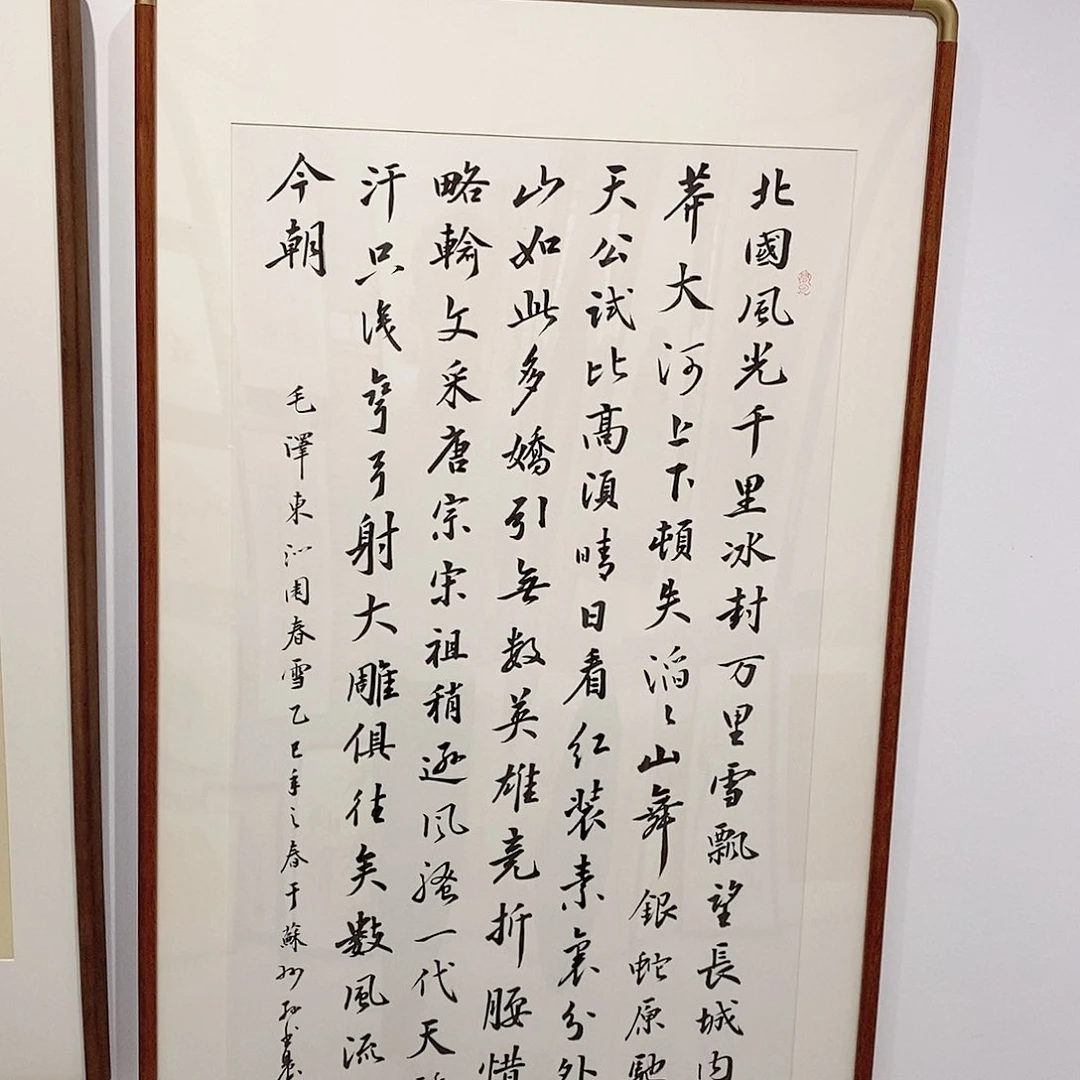 北國風光千里冰封万里雪飄望長城内
莽大河上下頓失滔〻山舞銀蛇原馳
天公試比高須晴日看红装素裹分外
山如此多嬌引無数英雄竞折腰惜
略輸文采唐宗宋祖稍逊风騷一代天
汗只识弯弓射大雕俱往矣數風流
今朝
毛澤東沁园春雪乙巳年之春于蘇州